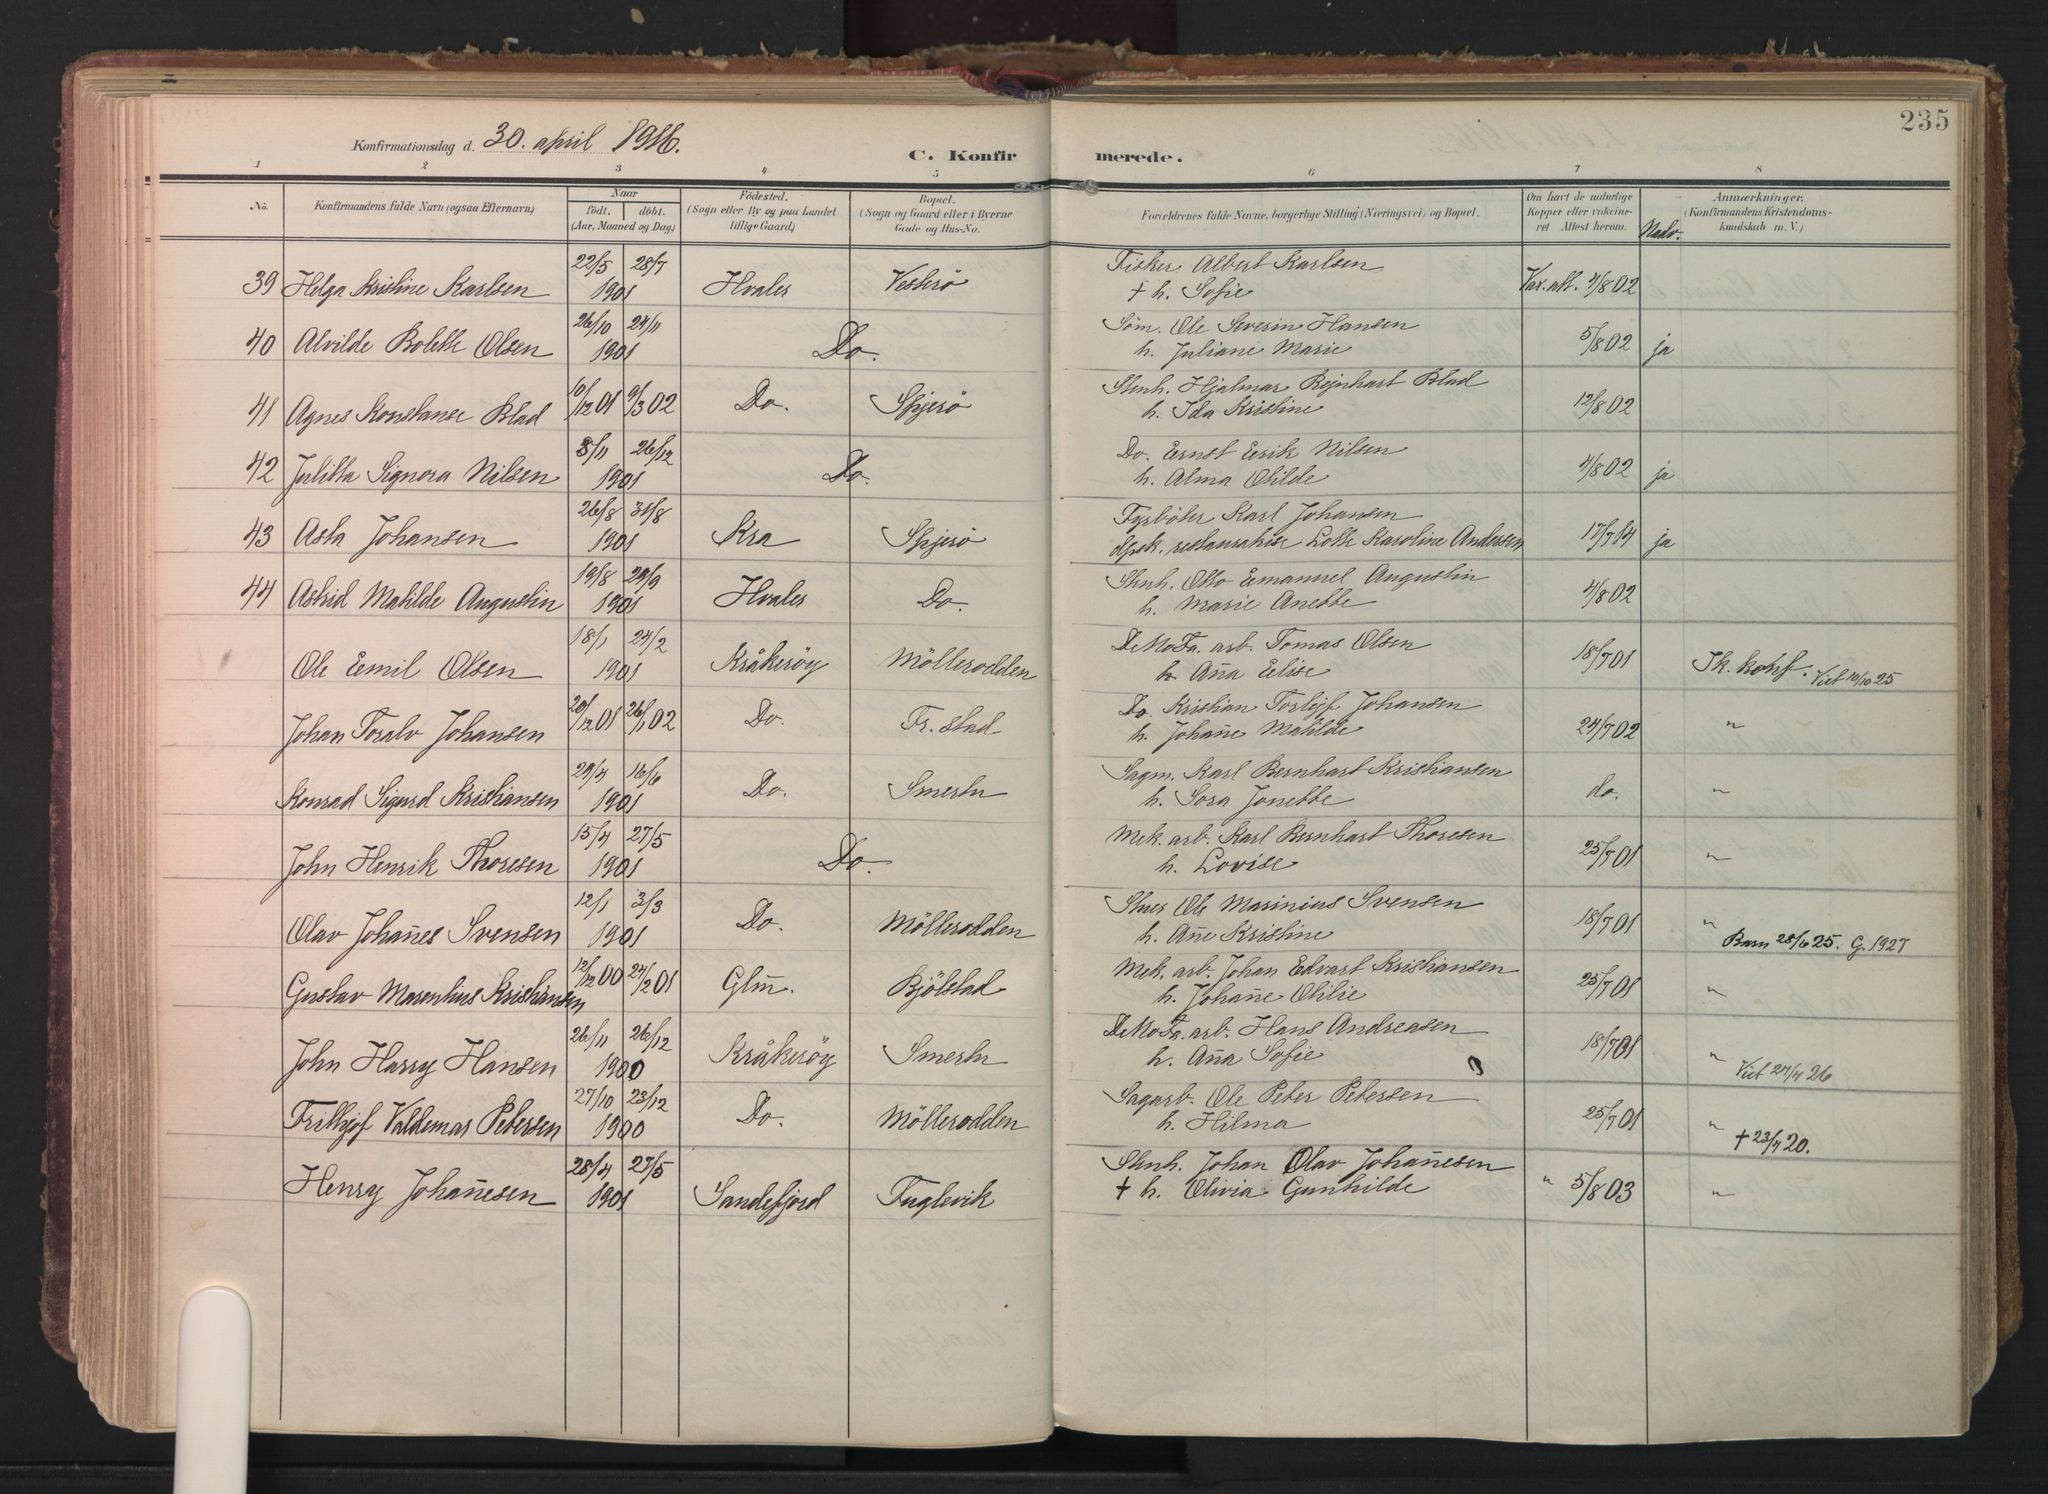 235
Konfirmationsdag d. 30. april 1916.
C. Konfirmerede.
1 2 3 4 5 6 7 8
No.
Konfirmandens fulde Navn (ogsaa Efternavn)
Naar
födt. döbt.
(Aar, Maaned og Dag)
Födested.
(Sogn eller By og paa Landet
tillige Gaard)
Bopæl.
(Sogn og Gaard eller i Byerne
Gade og Hus-No.
Forældrenes fulde Navne, borgerlige Stilling (Næringsvei) og Bopæl.
Om havt de naturlige
Kopper eller vakcine-
ret Attest herom.
Nadv.
Anmærkninger.
(Konfirmandens Kristendoms-
kundskab m. V.)
39 Helga Kristine Karlsen 22/5 28/7 1901 Hvaler Vesterö Fisker Albert Karlsen
† h. Sofie Vax. att. 4/8 02
40 Alvilde Bolette Olsen 26/10 24/11 1901 Do. Söm. Ole Severin Hansen
h. Juliane Marie 5/8 02 ja
41 Agnes Konstanse Blad 10/12 01 9/3 02 Do. Spjerö Stenh. Hjalmar Rejnhart Blad
h. Ida Kristine 12/8 02
42 Julitta Signora Nilsen 3/11 26/12 1901 Do. Do. Ernst Eerik Nilsen
h. Alma Otilde 4/8 02 ja
43 Asta Johansen 26/8 31/8 1901 Kra Spjerö Fyrböter Karl Johansen
restauratrise Lotte Karoline Andersen 17/7 14 ja
44 Astrid Matilde Augustin 19/8 29/9 1901 Hvaler Do. Stenh. Otto Eemanuel Augustin
h. Marie Anette 4/8 02
Ole Eemil Olsen 18/1 24/2 1901 Kråkeröy Möllerodden DeNoFa. arb. Tomas Olsen
h. Anna Eelise 18/7 01 Sk. konf. Viet 10/10 25
Johan Toralv Johansen 20/12 01 26/1 02 Do. Fr.stad Do. Kristian Torlejf Johansen
h. Johanne Matilde 24/7 02 "
Konrad Sigurd Kristiansen 29/4 16/6 1901 Do. Smertu Sagm. Karl Bernhart Kristiansen
h. Sora Jonette do. "
John Henrik Thoresen 15/4 27/5 1901 Do. Mek. arb. Karl Bernhart Thoresen
h. Lovise 25/7 01 "
Olav Johannes Svensen 12/1 3/3 1901 Do. Möllerodden Stuer Ole Marinius Svensen
h. Anne Kristine 18/7 01 " Barn 28/6 25. G. 1927
Gustav Marentius Kristiansen 12/12 00 24/2 01 Glm. Bjölstad Mek. arb. Johan Edvart Kristiansen
h. Johanne Otilie 25/7 01 "
John Harry Hansen 26/11 26/12 1900 Kråkeröy Smertu DeNoFa. arb. Hans Andreasen
h. Anna Sofie 18/7 01 " Viet 24/4 26
Fritthjof Valdemar Petersen 27/10 23/12 1900 Do. Möllerodden Sagarb. Ole Peter Petersen
h. Hilma 25/7 01 " † 23/4 20.
Henry Johannesen 28/4 27/5 1901 Sandefjord Fuglevik Stenh. Johan Olav Johannesen
† h. Olivia Gunhilde " 5/8 03 "